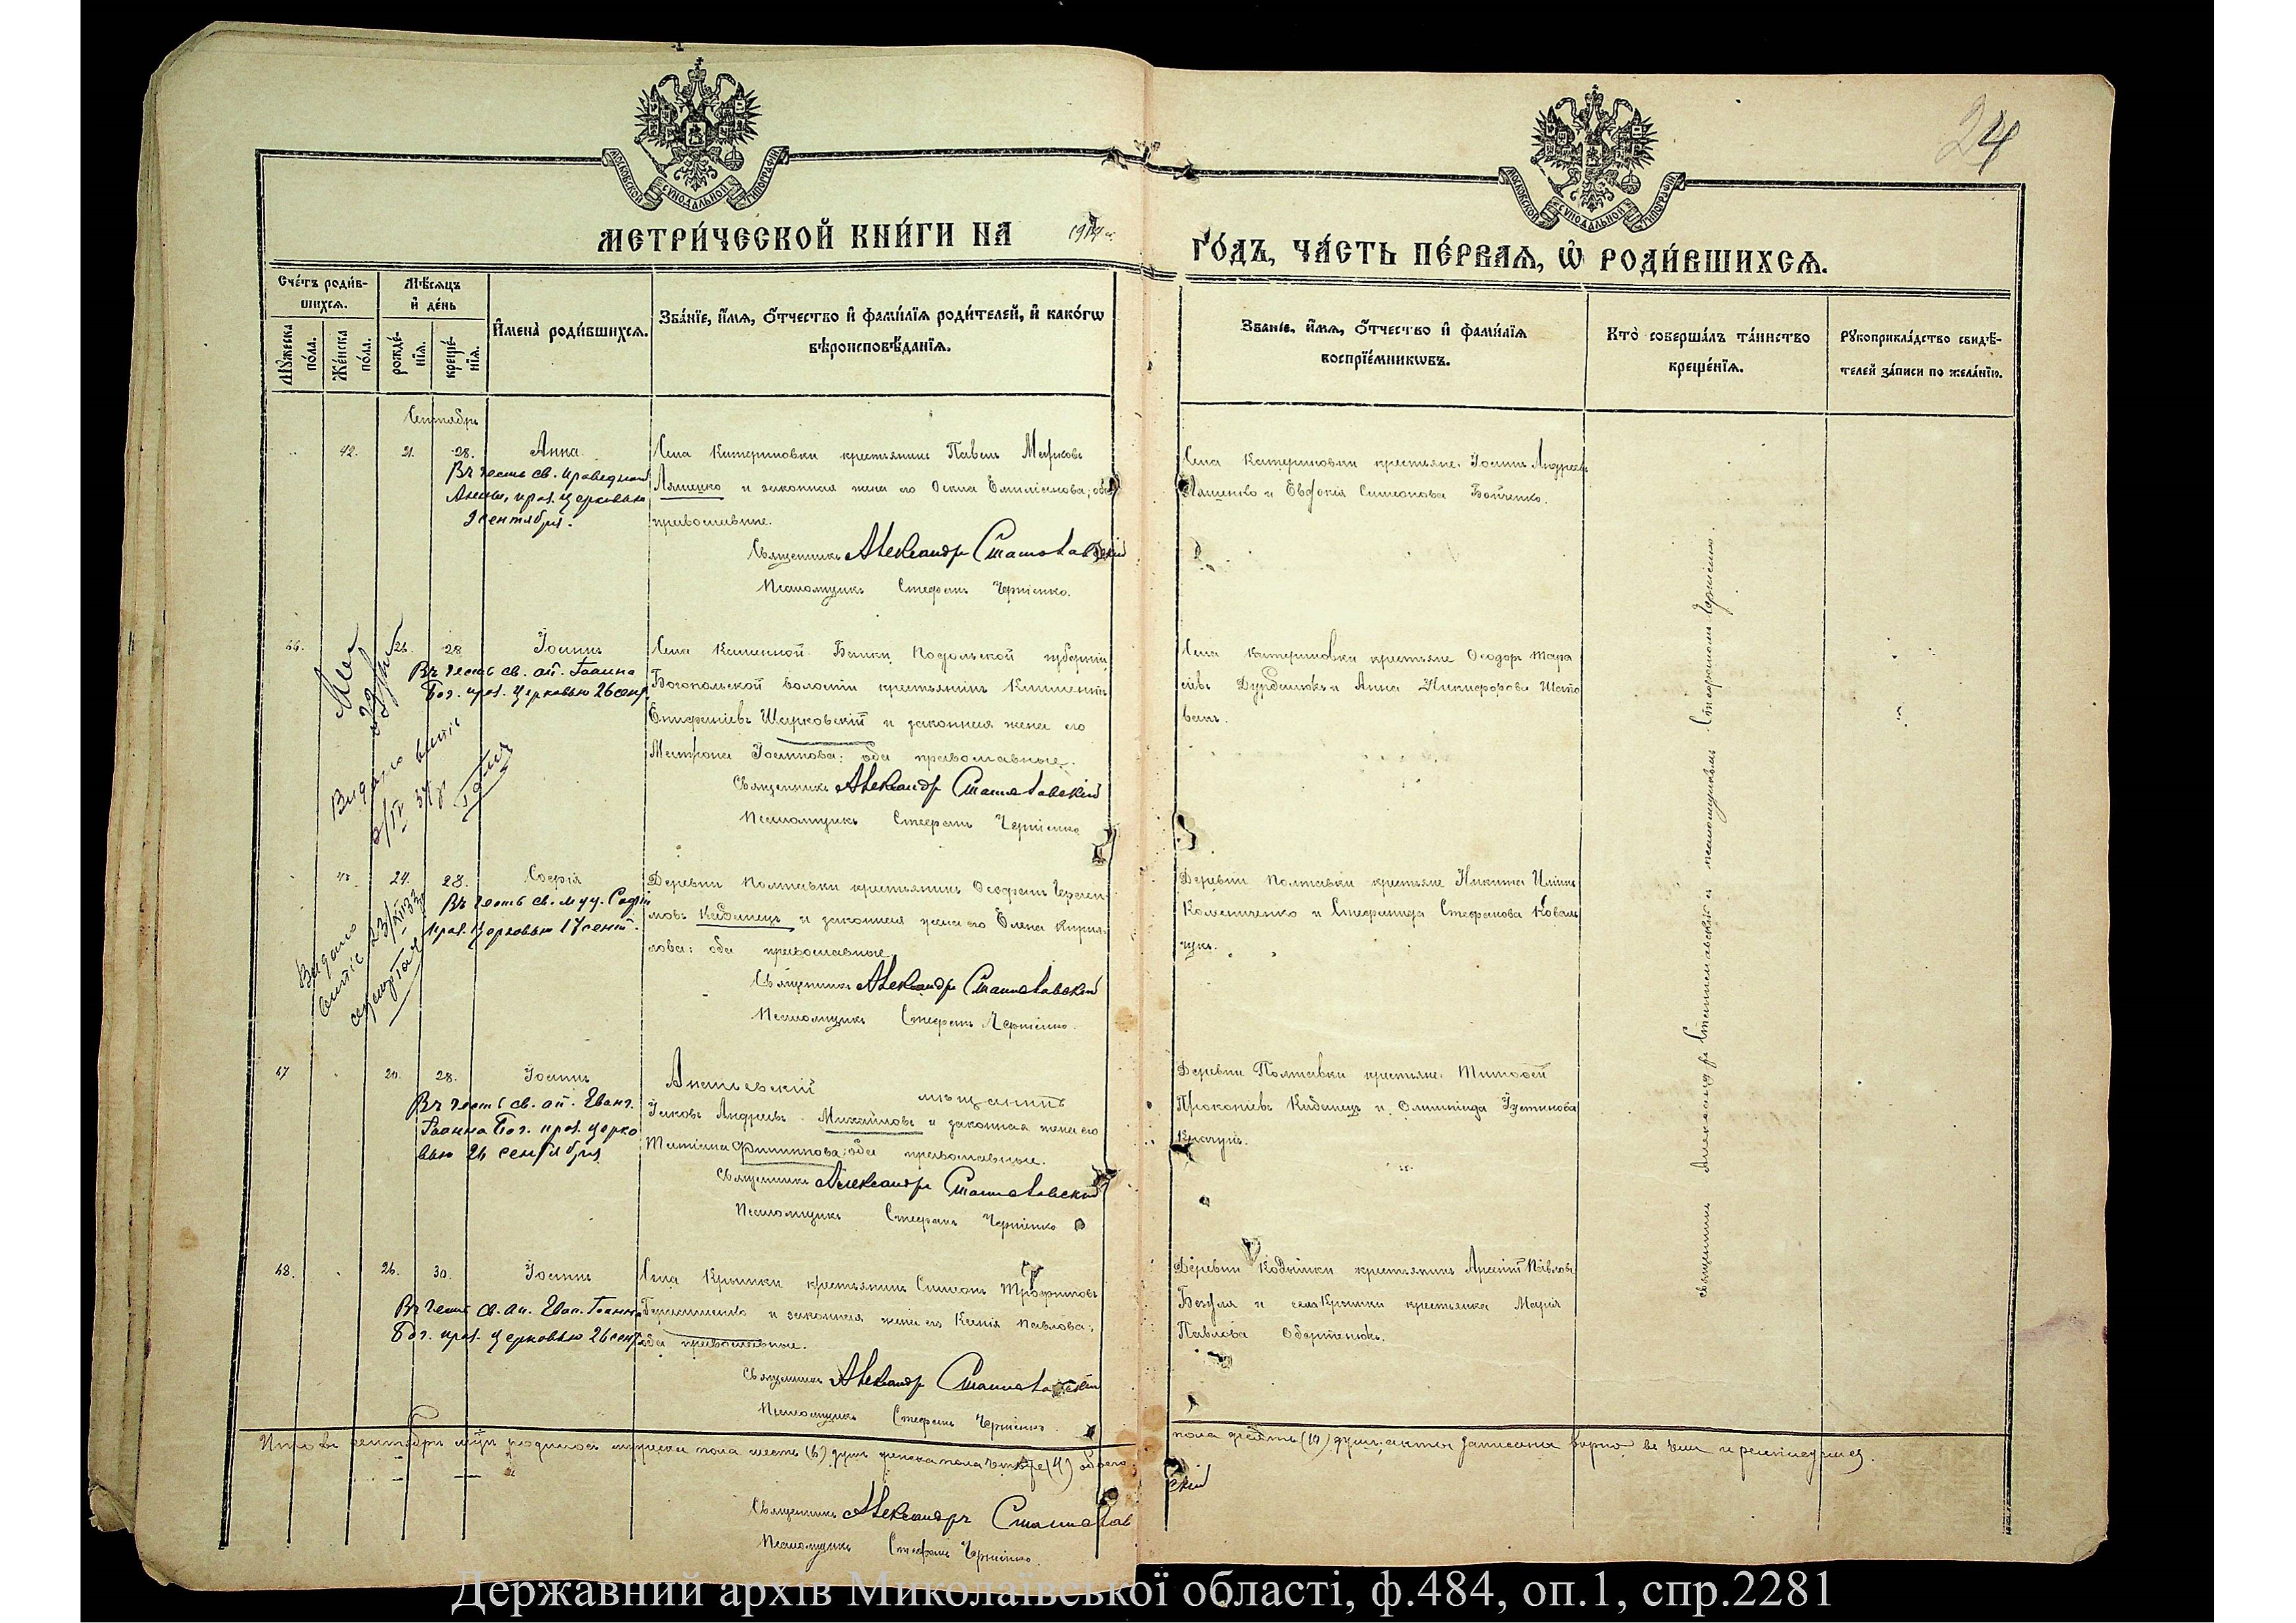 24
МОСКОВСКОЙ СУНОДАЛЬНОЙ ТИПОГРАФІИ
МОСКОВСКОЙ СУНОДАЛЬНОЙ ТИПОГРАФІИ
МЕТРИ́ЧЕСКОЙ КНИ́ГИ НА
ГО́ДЪ, ЧА́СТЬ ПЕ́РВАѦ, Ѡ РОДИ́ВШИХСѦ.
Сче́тъ роди́в-
шихсѧ.
Мꙋжеска по́ла.
Же́нска по́ла.
Мѣ́сѧцъ
и҆ де́нь
рожде́-
нїѧ.
креще́-
нїѧ.
И҆мена̀ роди́вшихсѧ.
Зва́нїе, и҆́мѧ, о҆́тчество и҆ фами́лїѧ роди́телей, и҆ како́гѡ
вѣроисповѣ́данїѧ.
Зва́нїе, и҆́мѧ, о҆́тчество и҆ фами́лїѧ
воспрїе́мникѡвъ.
Кто̀ соверша́лъ та́инство
креще́нїѧ.
Рꙋкоприкла́дство свидѣ́-
телей за́писи по жела́нїю.
Сентябрь
42. 21. 28. Анна
Въ честь св. праведной
Анны, праз. церковью
9 сентября.
Села Катериновки крестьянинъ Павелъ Марковъ
Ляшенко и законная жена его Емиліанова; оба
православные.
Священникъ Александръ Станиславскій
Псаломщикъ Стефанъ Черніенко.
Села Катериновки крестьяне: Іоаннъ Андреевъ
Ляшенко и Евдокія Симеонова Бойченко.
26. 28 Іоаннъ
Въ честь св. ап. Іоанна
Бог. праз. церковью 26 сент.
Видано витяг
Села Каменной Балки Подольской губерніи
Богопольской волости крестьянинъ Климентій
Епифаніевъ Шарковскій и законная жена его
Матрона Іоаннова; оба православные.
Священникъ Александръ Станиславскій
Псаломщикъ Стефанъ Черніенко
Села Катериновки крестьяне Ѳеодоръ Тара
сіевъ и Анна Никифорова
24. 28. Софія
Въ честь св. муч. Софіи
праз. церковью 17 сент.
Видано
витяг 23/XII 33
Деревни Полтавки крестьянинъ Ѳеофанъ
Кабанецъ и законная жена его Елена Кирил-
лова; оба православные
Священникъ Александръ Станиславскій
Псаломщикъ Стефанъ Черніенко.
Деревни Полтавки крестьяне Никита Иліинъ
и Стефанида Стефанова Коваль
чукъ.
47 20. 28. Іоаннъ
Въ честь св. ап. Еванг.
Іоанна Бог. праз. церко
вью 26 сентября
Ананьевскій мѣщанинъ
Іаковъ Андреевъ Михайловъ и законная жена его
Татіана Филиппова; оба православные.
Священникъ Александръ Станиславскій
Псаломщикъ Стефанъ Черніенко
Деревни Полтавки крестьяне: Тимоѳей
Прокопіевъ Кабанецъ и Олимпіада Іустинова
48. 26. 30. Іоаннъ
Въ честь св. ап. Еван. Іоанна
Бог. праз. церковью 26 сент.
Села Крымки крестьянинъ Симеонъ Трофимовъ
Герасименко и законная жена его Ксенія Павлова;
оба православные.
Священникъ Александръ Станиславскій
Псаломщикъ Стефанъ Черніенко.
Деревни Кодымки крестьянинъ Арсеній Павловъ
и села Крымки крестьянка Марія
Павлова
Священникъ Александръ Станиславскій и псаломщикомъ Стефаномъ Черніенко.
сентябрѣ родилось мужеска пола шесть (6) душъ женска пола четыре (4) обоего
пола десять (10) душъ; акты записаны вѣрно
Священникъ Александръ Станислав
скій
Псаломщикъ Стефанъ Черніенко.
Державний архів Миколаївської області, ф.484, оп.1, спр.2281